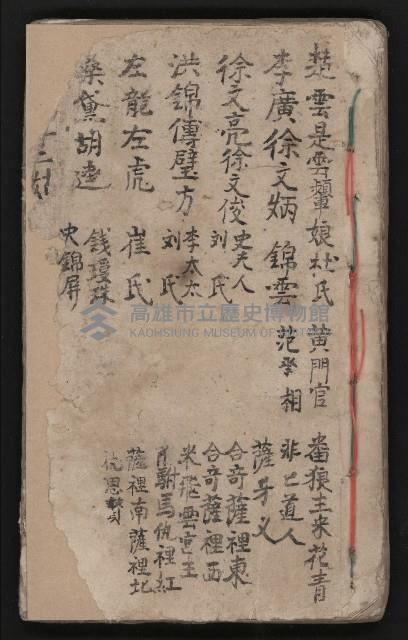 楚雲是雲顰娘杜氏 黃門官 番狼主米花青
李廣徐文炳 錦雲 范丞相 非非道人
徐文亮徐文俊 史夫人 刘氏 薩牙叉
洪錦傅璧方 李太太 刘氏 合奇薩裡東 合奇薩裡西
左龍左虎 崔氏 米飛雲宮主
桑黛胡逵 錢瓊珠 史錦屏 肖駙馬仇裡紅
薩裡南薩裡北
仇恩
高雄市立歷史博物館
KAOHSIUNG MUSEUM OF HISTORY